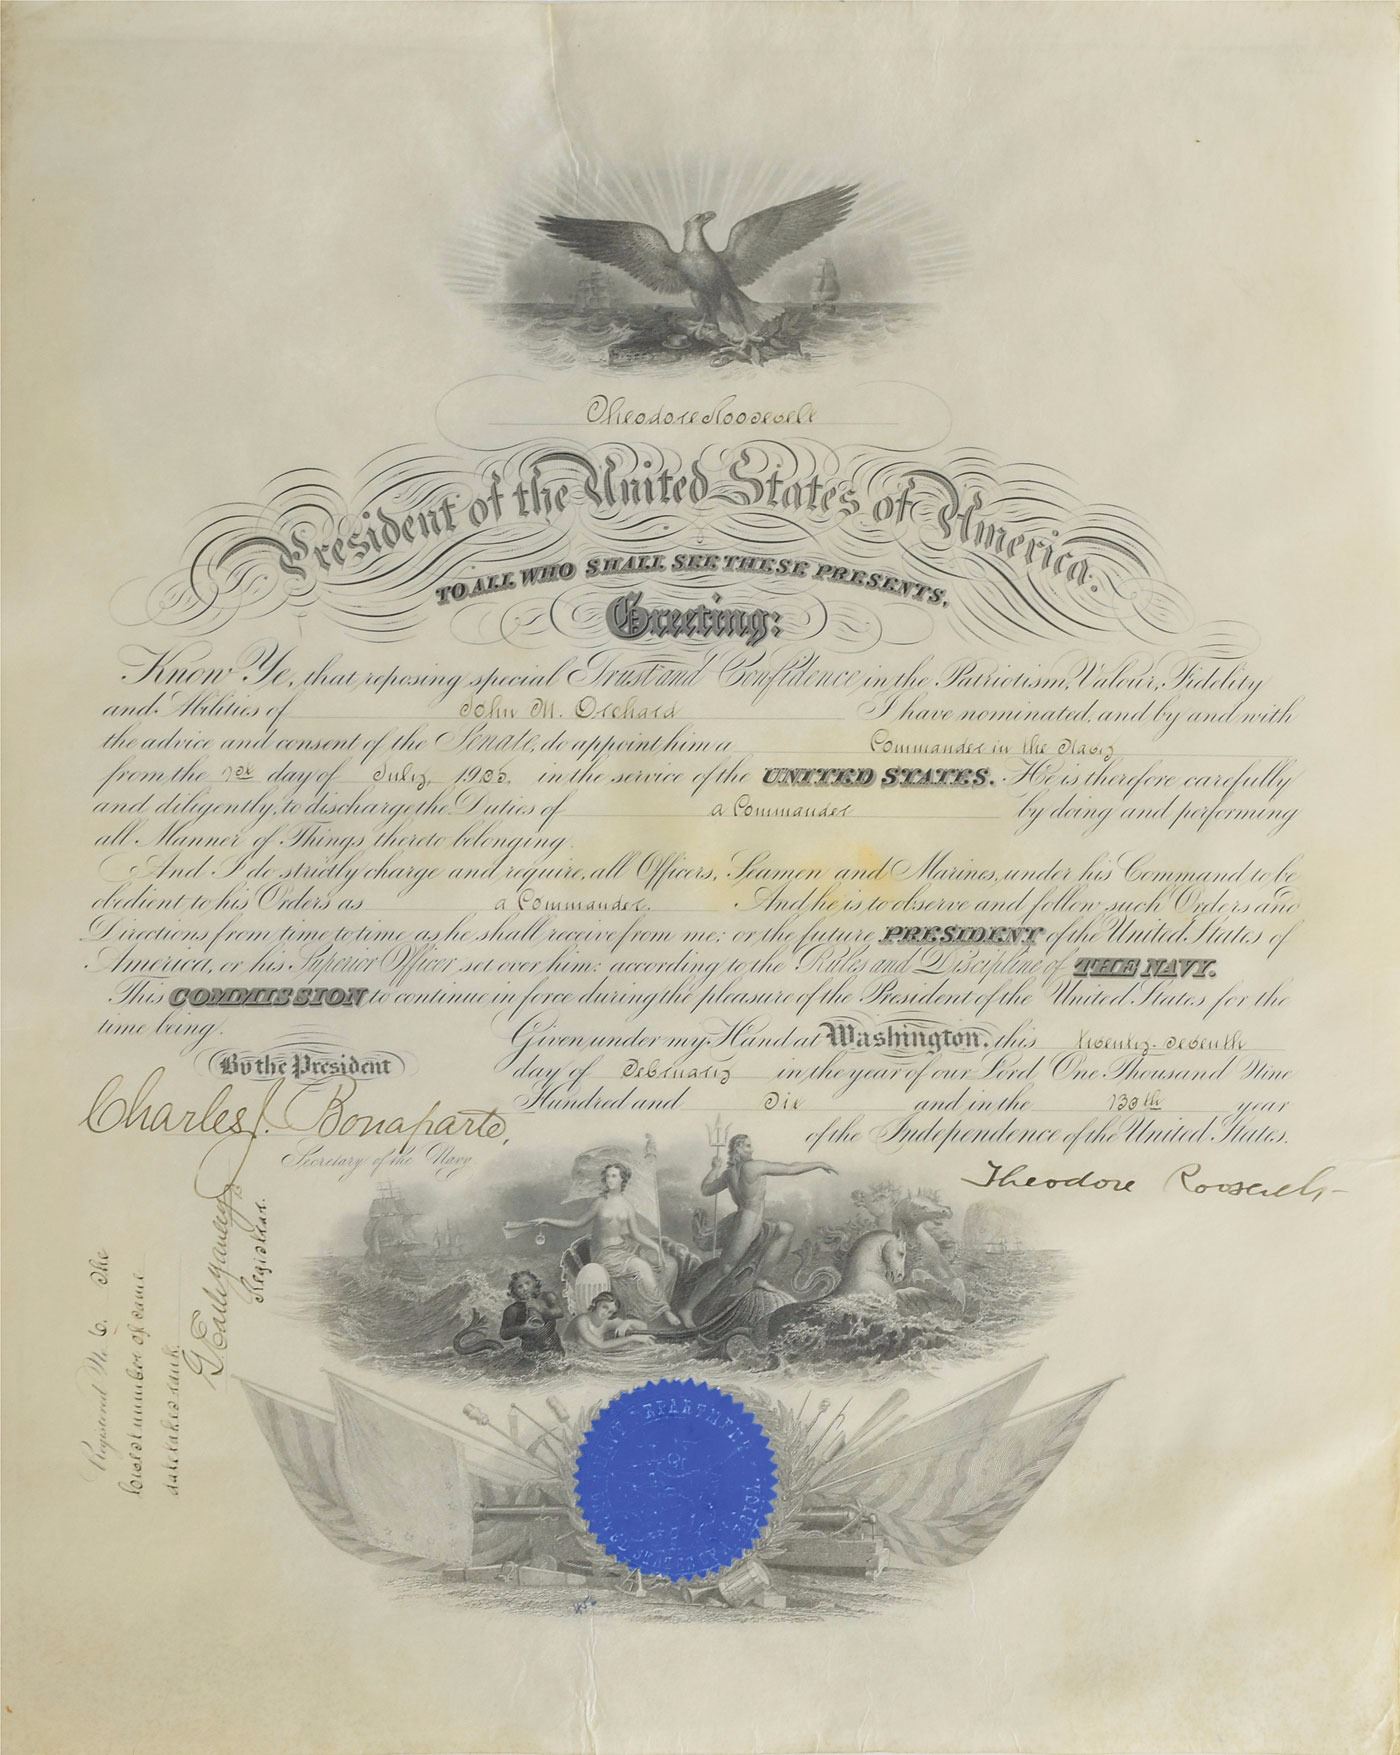 Theodore Roosevelt
President of the United States of America.
TO ALL WHO SHALL SEE THESE PRESENTS,
Greeting:
Know Ye, that reposing special Trust and Confidence in the Patriotism, Valour, Fidelity
and Abilities of John M. Orchard I have nominated, and by and with
the advice and consent of the Senate, do appoint him a Commander in the Navy
from the 1st day of July, 1905, in the service of the UNITED STATES. He is therefore carefully
and diligently to discharge the Duties of a Commander by doing and performing
all Manner of Things thereto belonging.
And I do strictly charge and require, all Officers, Seamen and Marines, under his Command to be
obedient to his Orders as a Commander. And he is to observe and follow such Orders and
Directions from time to time as he shall receive from me; or the future PRESIDENT of the United States of
America, or his Superior Officer set over him; according to the Rules and Discipline of THE NAVY.
This COMMISSION to continue in force during the pleasure of the President of the United States for the
time being.
Given under my Hand at Washington, this twenty-seventh
day of February in the year of our Lord One Thousand Nine
Hundred and Six and in the 130th year
of the Independence of the United States.
By the President
Charles J. Bonaparte,
Secretary of the Navy
Theodore Roosevelt
Registrar.
Registered No. 6. The
lowest number of same
date takes rank